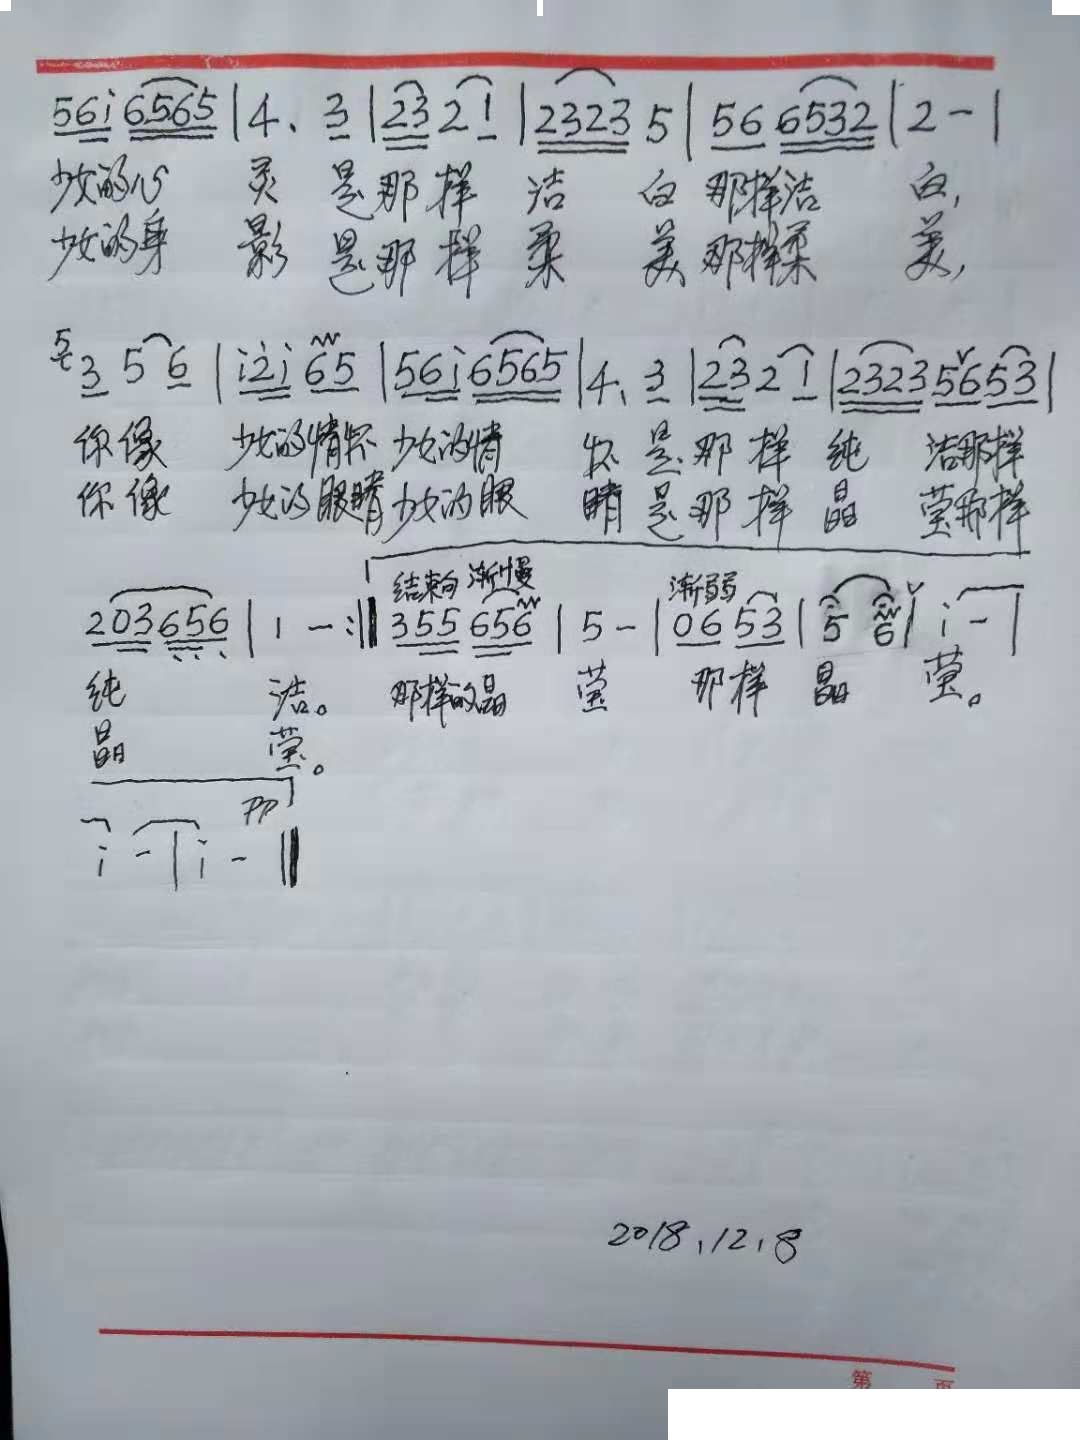 56i 6565 | 4. 3 | 23 2 1 | 2323 5 | 56 6532 | 2 - |
少女的心 灵 是那样 洁 白 那样洁 白,
少女的身 影 是那样 柔 美 那样柔 美,
5 3 5 6 | i2i 65 | 56i 6565 | 4. 3 | 23 2 1 | 2323 5653 |
你像 少女的情怀 少女的情 怀 是那样 纯 洁那样
你像 少女的眼睛 少女的眼 睛 是那样 晶 莹那样
结束句 渐慢 渐弱
203 656 | 1 - :‖ 355 656 | 5 - | 06 53 | 5 6 | i - |
纯 洁。 那样的晶 莹 那样 晶 莹。
晶 莹。
pp
i - | i - ‖
2018.12.8
第 页